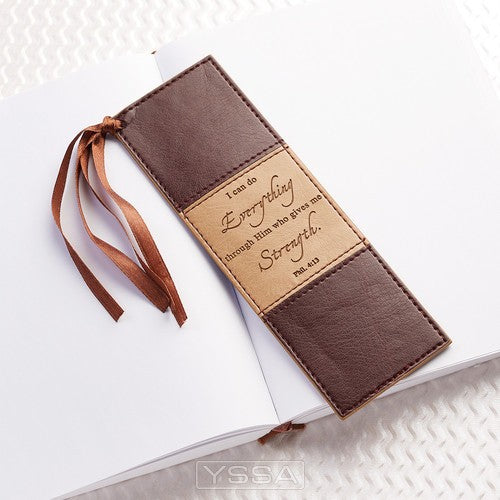 I can do
Everything
through Him who gives me
Strength.
Phil. 4:13
YSSA